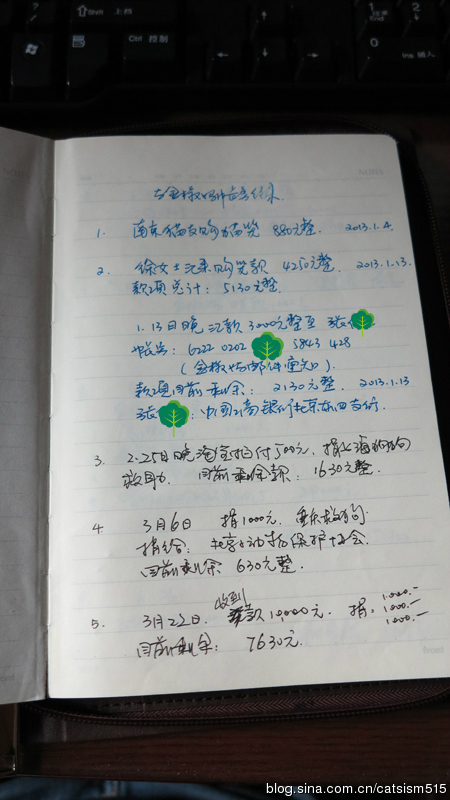 Shift 上档
Ctrl 控制
Ins 插入
1. 南京猫友购猫凳 880元整. 2013.1.4.
2. 徐女士汇来购凳款 4250元整. 2013.1.13.
款项总计: 5130元整.
1.13日晚 汇款 3000元整至 张
帐号: 6222 0202 5843 428
(金授 邮件重知).
款项目前剩余: 2130元整. 2013.1.13
张 : 中国工商银行北京东四支行.
3. 2.25日晚淘宝支付500元, 捐 上海狗狗
救助. 目前剩余款: 1630元整.
4 3月6日 捐1000元. 重庆救狗.
捐给: 北京小动物保护协会.
目前剩余 630元整.
5. 3月22日. 收到 款10,000元 捐, 1000.- 1000.- 1000.-
目前剩余: 7630元.
blog.sina.com.cn/catsism515